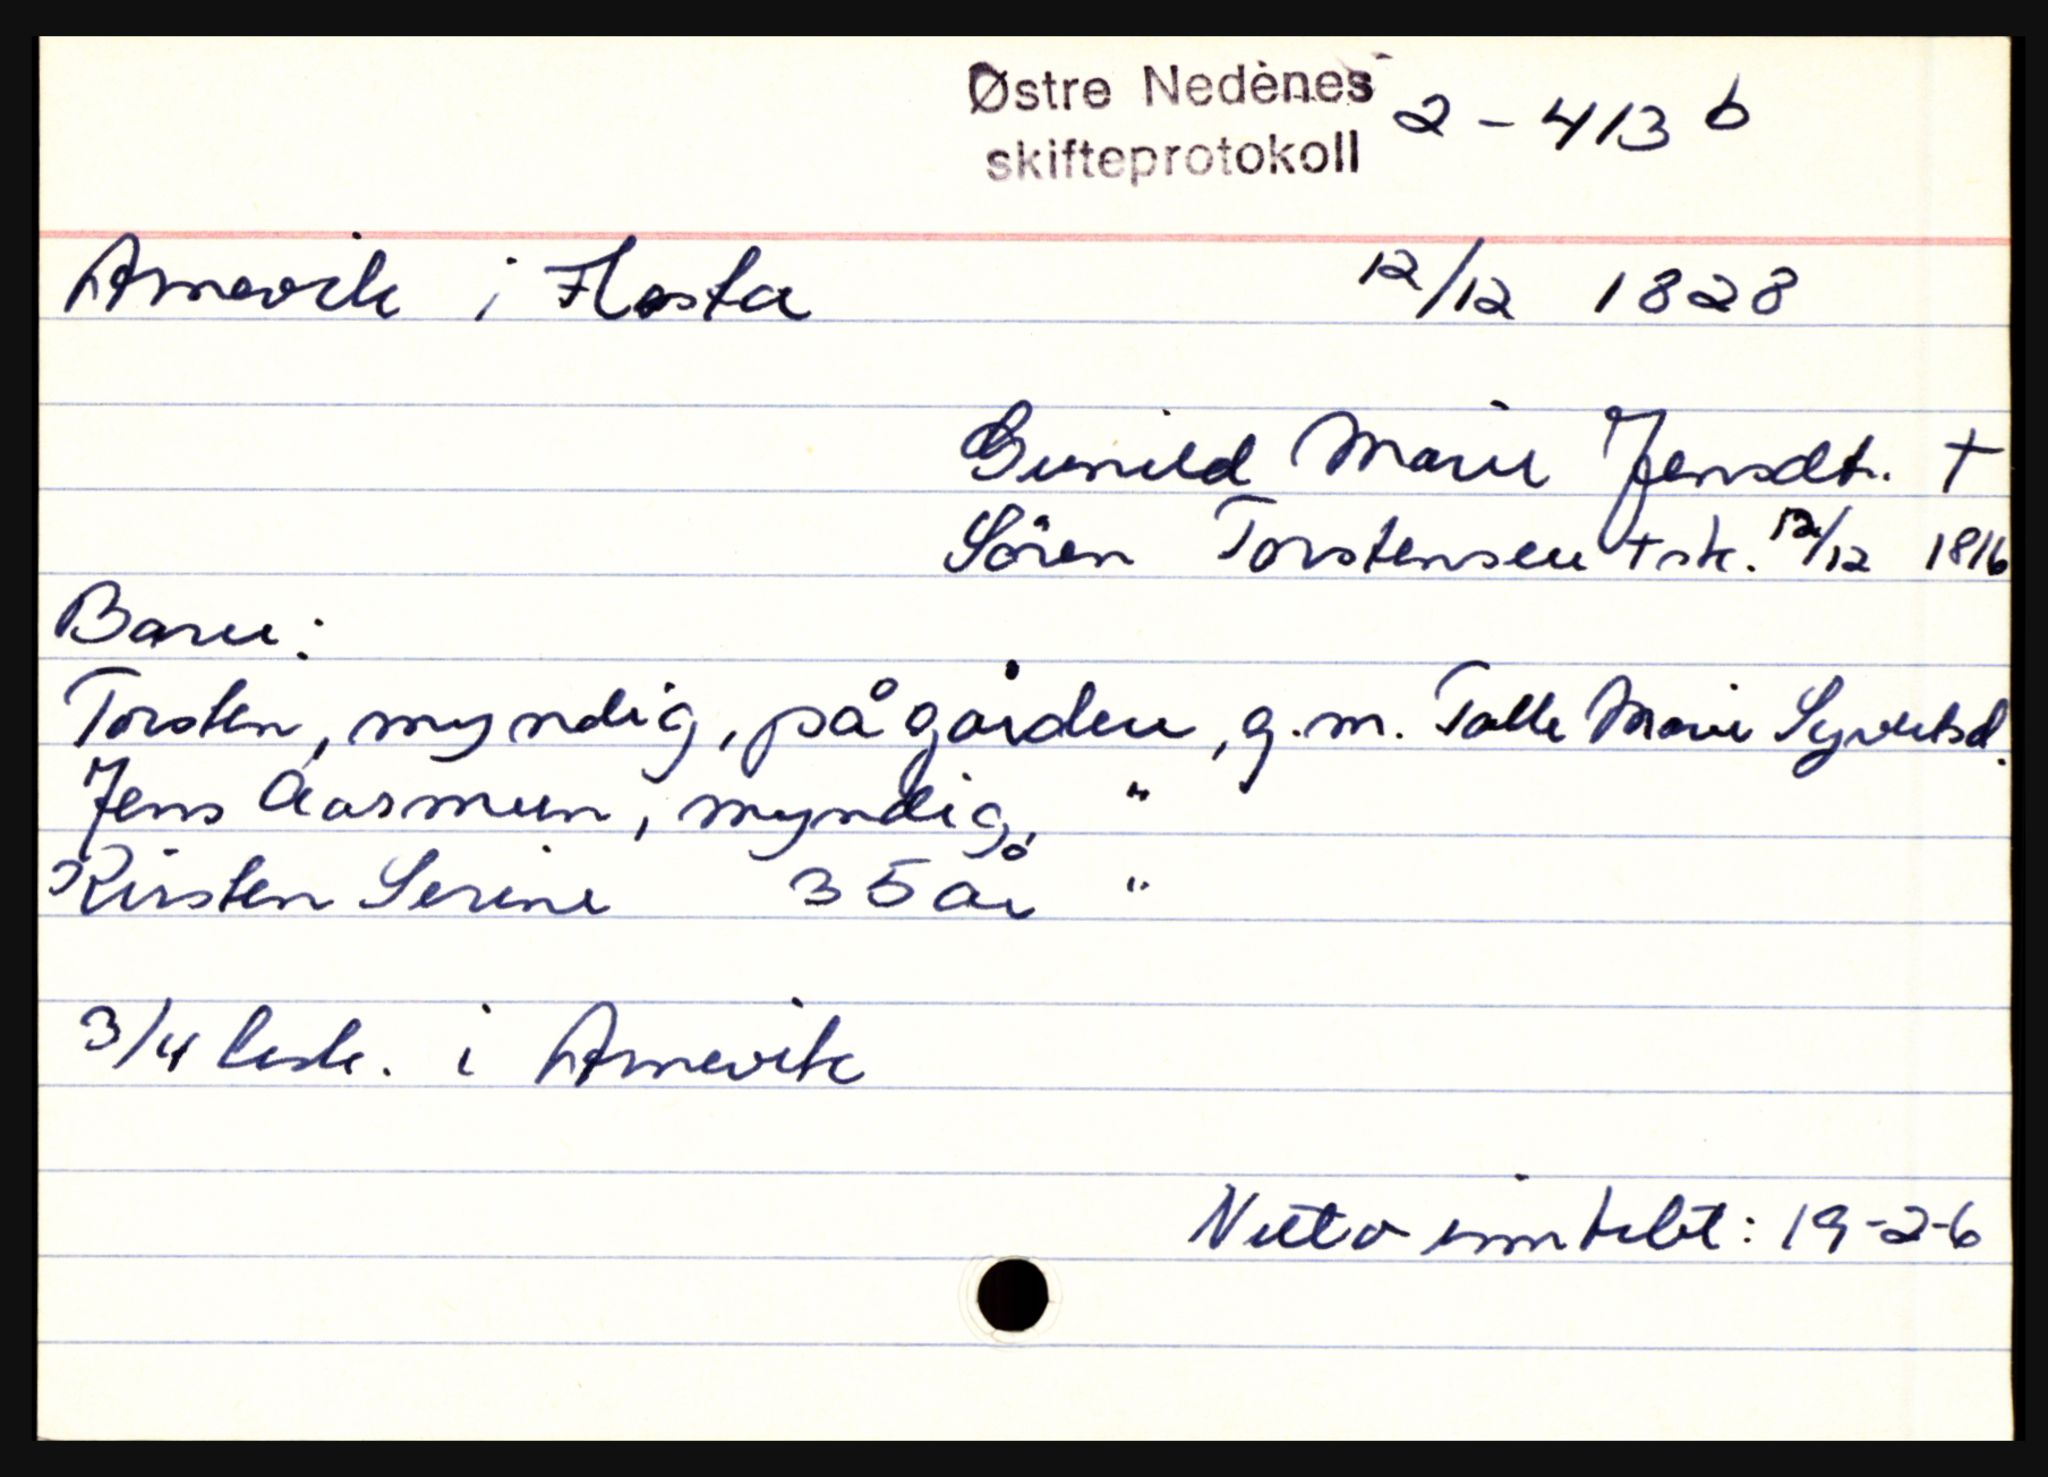 Østre Nedenes 2-413 b
skifteprotokoll
Arnevik i Flosta 12/12 1828
Gunild Marie Jensdt. †
Sören Torstensen † sk. 12/12 1816
Barn:
Torsten, myndig, på gården, g.m. Talle Marie Syvertsd.
Jens Aasmun, myndig, "
Kirsten Serine 35 år "
3/4 besk. i Arnevik
Netto inntekt: 19-2-6